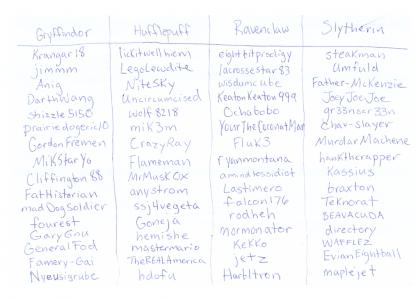 Gryffindor Hufflepuff Ravenclaw Slytherin
Krangar18 lickitwellhiem eightfitprodigy steakman
jimmm LegoLewdite lacrossestar83 Umfuld
Anig NiteSky wisdumcube Father-McKenzie
DarthWang Uncircumcised KeatonKeaton999 JoeyJoeJoe
shizzle5150 Wolf8218 Ochobobo gr33nser33n
prairiedogeric10 mik3m YourTheCoconutMan Char-slayer
GordonFremen CrazyRay Fluk3 MurdarMachene
MiKStarYo Flameman ryanmontana hanktherapper
Cliffington88 MrMuskOx amindlessidiot Kassius
FatHistorian anystrom Lastimero braxton
madDogSoldier ssj4vegeta falcon176 Teknorat
fourest Goneja rodheh BEAVACUDA
GaryGnu hemishe normonator directory
GeneralFod mastermario KeKKo WAFFLEZ
Famery-Gai TheREALAmerica jetz EvianEightball
Nyeusigrube hdofu Hurbltron maplejet